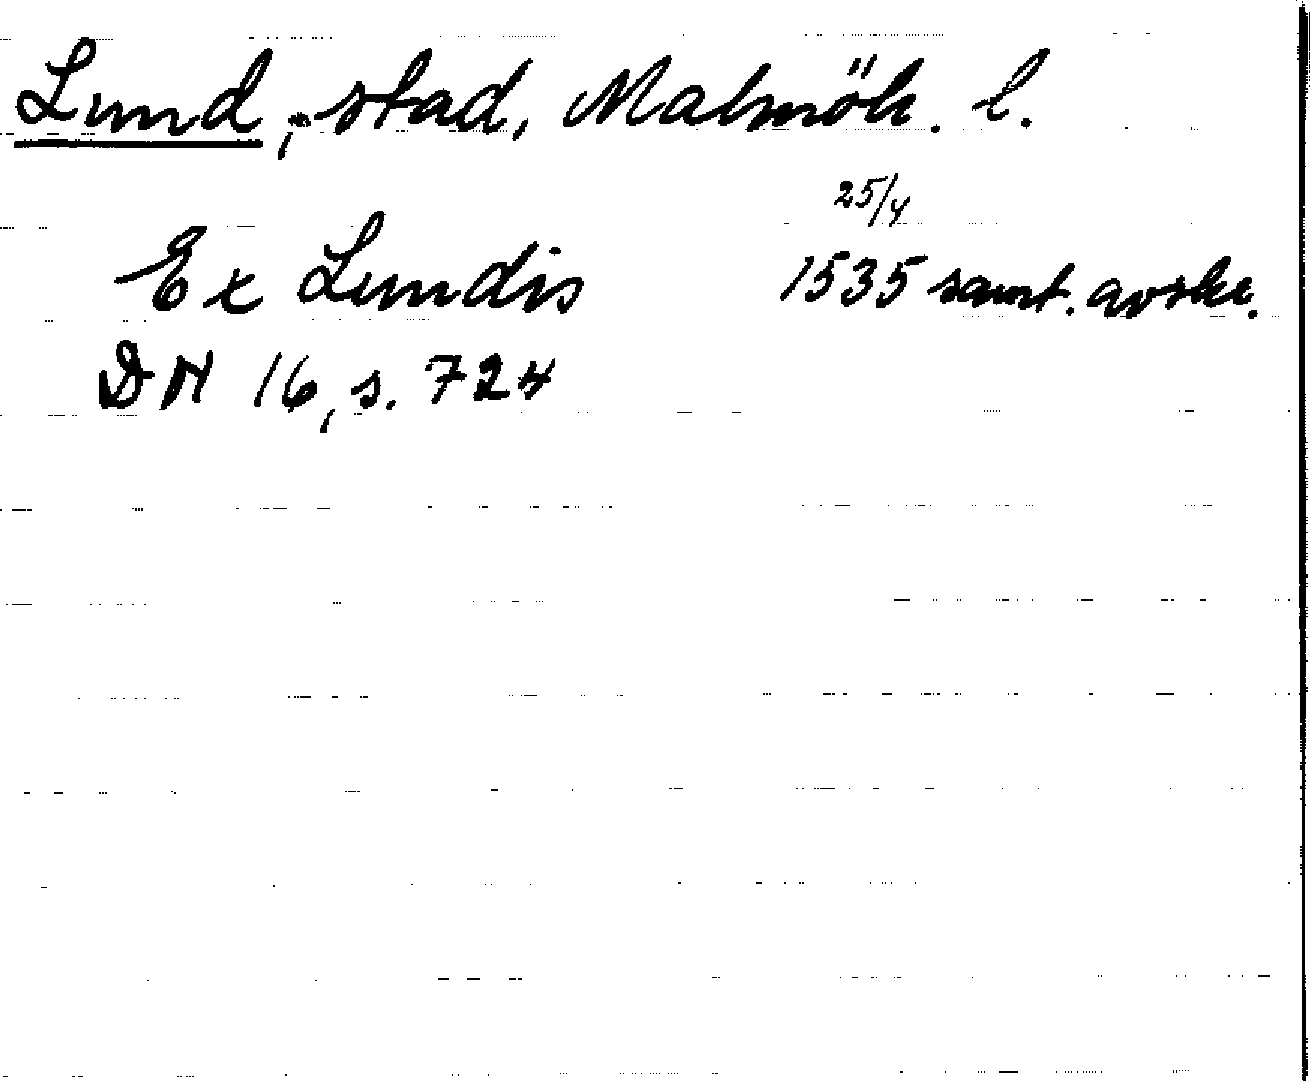 Lund, stad, Malmöh. l.
25/4
Ex Lundis 1535 samt. avskr.
DN 16, s. 724